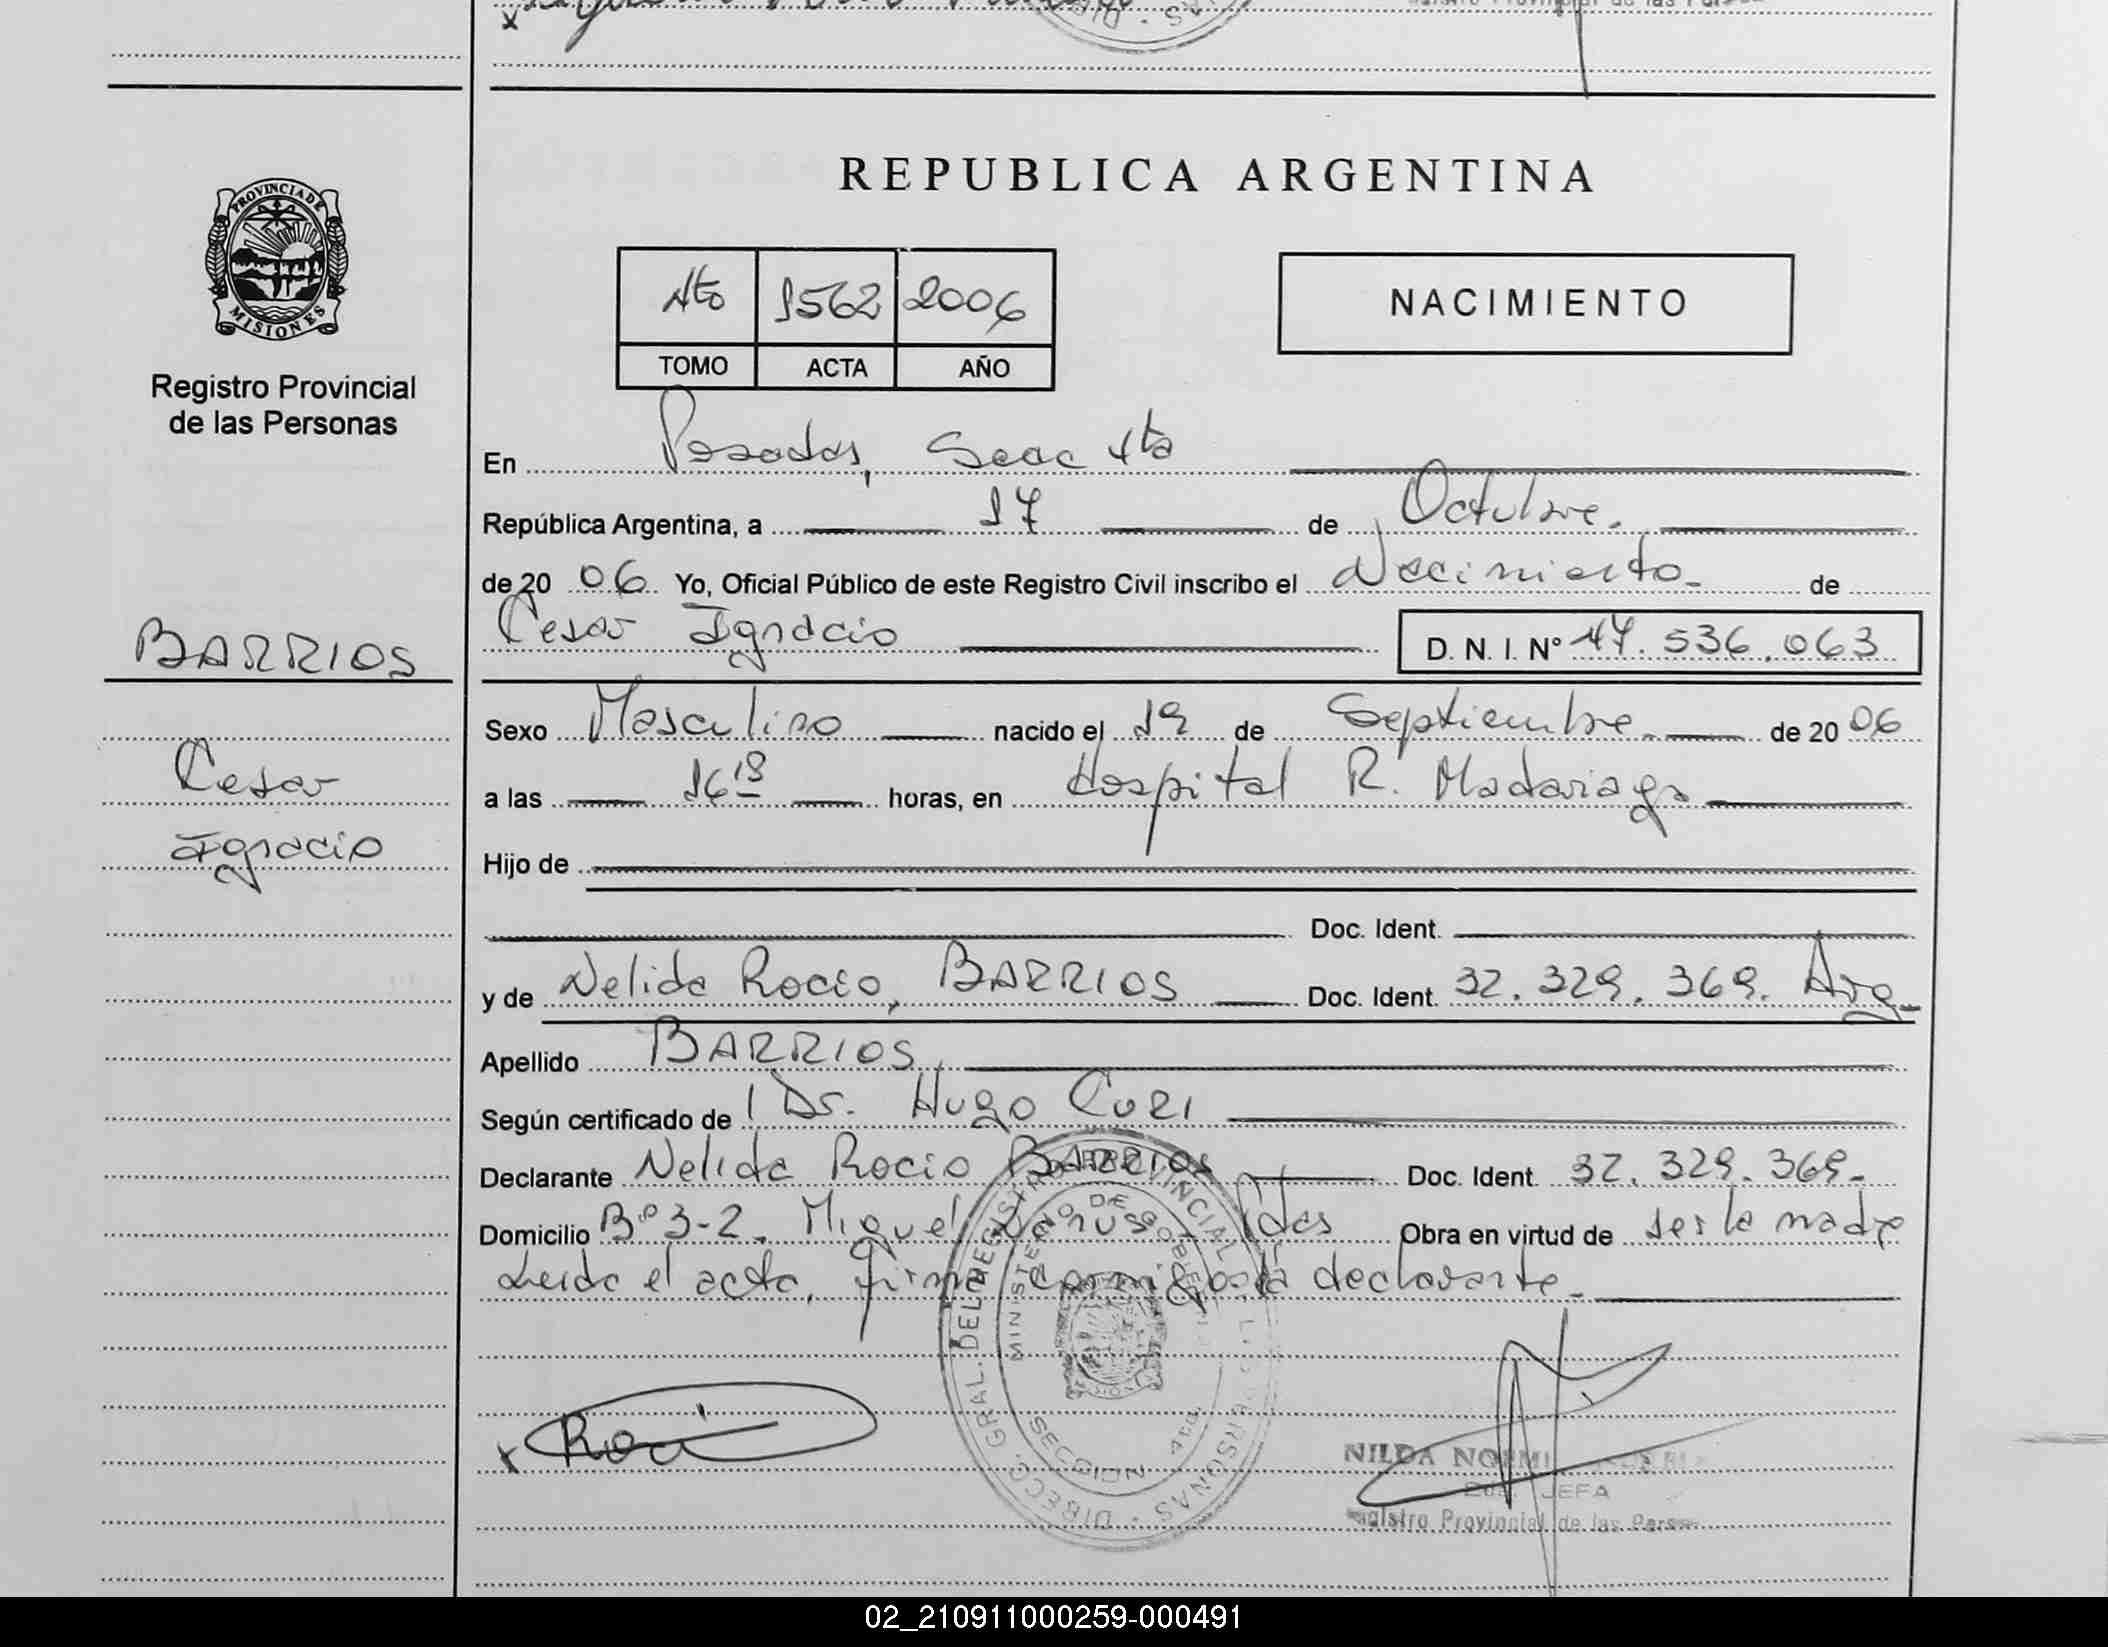 REPUBLICA ARGENTINA
PROVINCIA DE
MISIONES
Registro Provincial
de las Personas
4to 1562 2006
TOMO ACTA AÑO
NACIMIENTO
En Posadas, Secc 4ta
República Argentina, a 17 de Octubre.
de 20 06 Yo, Oficial Público de este Registro Civil inscribo el Nacimiento de
Cesar Ignacio D. N. I. Nº 47.536.063
BARRIOS
Cesar
Ignacio
Sexo Masculino nacido el 19 de Septiembre de 20 06
a las 16 18 horas, en Hospital R. Madariaga
Hijo de
Doc. Ident.
y de Nelida Rocio, BARRIOS Doc. Ident. 32.329.369. Arg.
Apellido BARRIOS
Según certificado de Dr. Hugo Curi
Declarante Nelida Rocio BARRIOS Doc. Ident. 32.329.369.
Domicilio Bº 3-2. Miguel Lanus Pdas Obra en virtud de ser la madre
Leida el acta, firma conmigo la declarante.
DIRECC. GRAL. DEL REGISTRO PROVINCIAL DE LAS PERSONAS
MINISTERIO DE GOBIERNO
SECCION 4ta.
x Roci
NILDA NOEMI
JEFA
Registro Provincial de las Personas
02_210911000259-000491